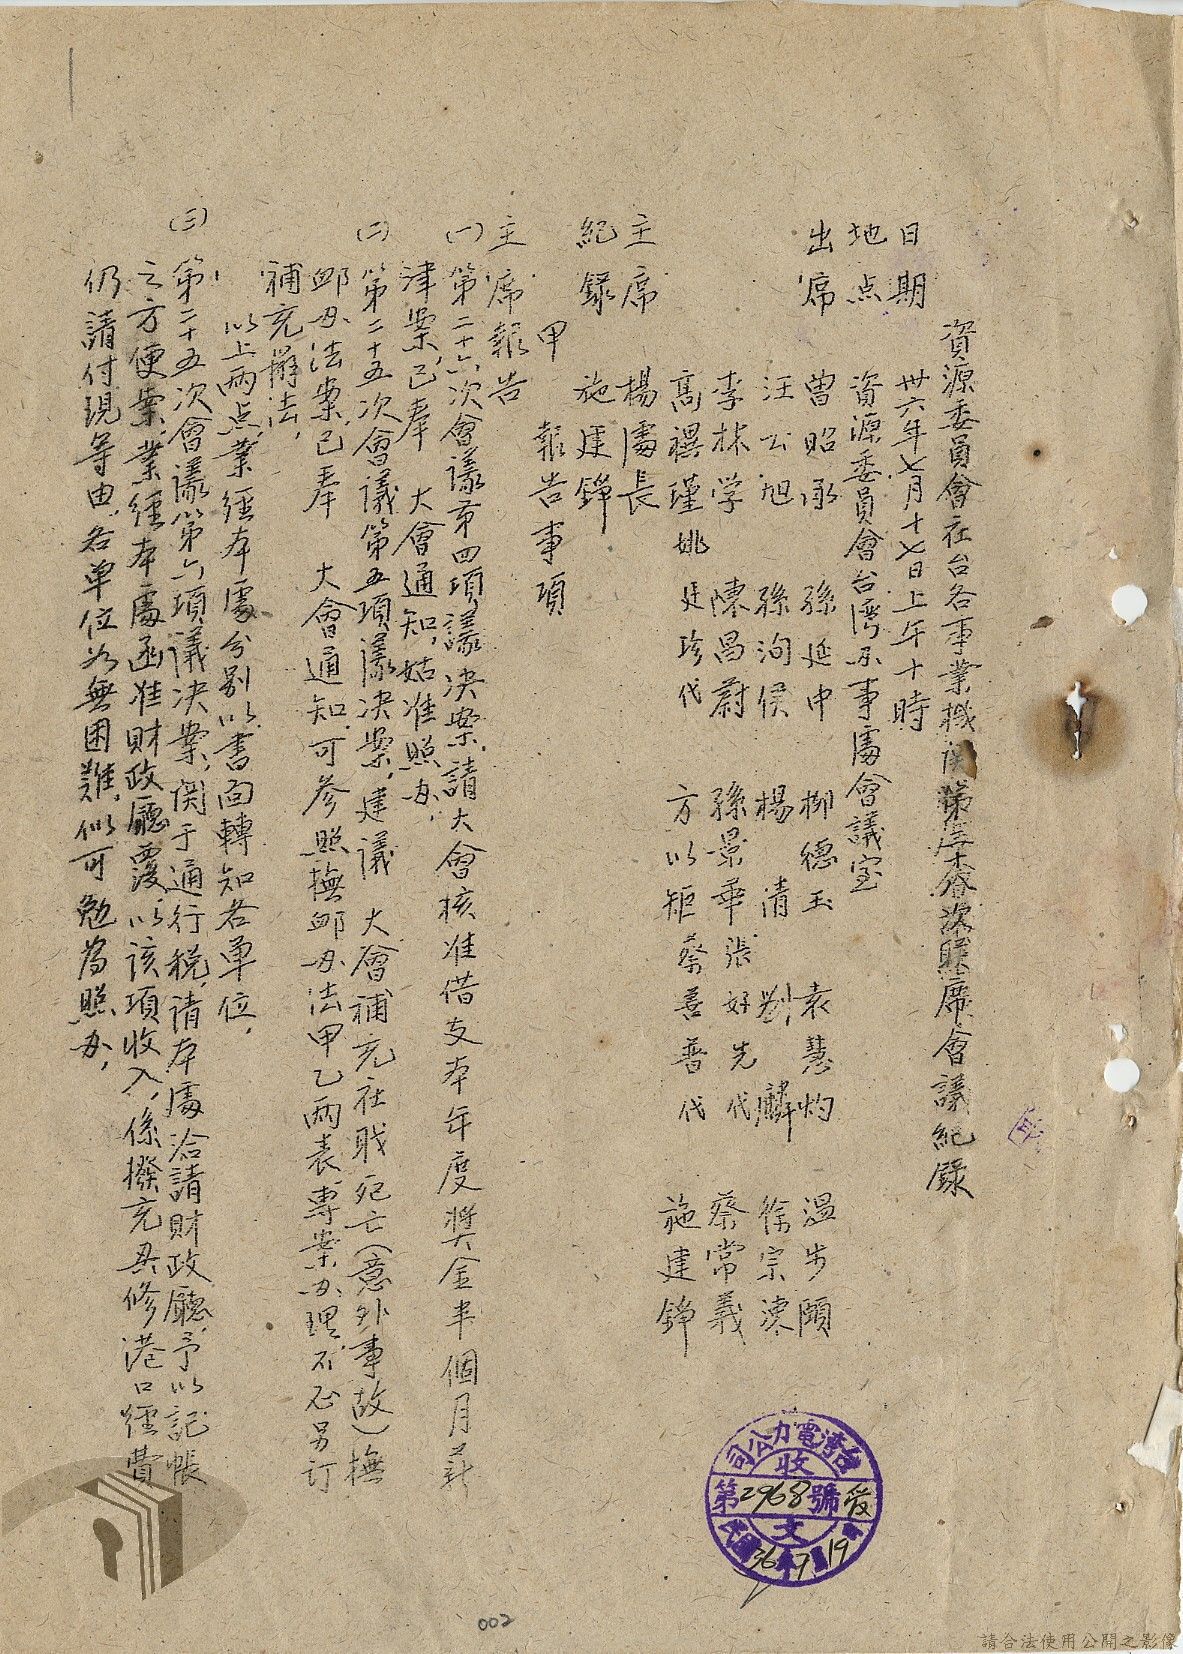 資源委員會在台各事業機関第次聯席會議紀錄
日期 卅六年七月十七日上午十時
地点 資源委員會台湾办事處會議室
出席 曾昭承 孫延中 柳德玉 袁慧灼 温步頤
汪公旭 孫洵侯 楊清 劉麟 徐宗涑
李林学 陳昌蔚 孫景華 張好先代 蔡常義
高禩瑾 姚廷珍代 方以矩 蔡善普代 施建錚
主席 楊處長
紀錄 施建錚
甲 報告事項
主席報告
(一)第二十六次會議第四項議決案，請大會核准借支本年度獎金半個月薪
津案，已奉 大會通知，姑准照办，
(二)第二十五次會議第五項議決案，建議 大會補充在职死亡(意外事故)撫
卹办法案，已奉 大會通知，可参照撫卹办法甲乙兩表專案办理，不必另訂
補充辦法，
以上兩点，業經本處分别以書面轉知各單位，
(三)第二十五次會議第六項議決案，関于通行税，請本處洽請財政廳，予以記帳
之方便案，業經本處函准財政廳覆，以該項收入，係撥充修港口經費
仍請付現等由，各單位如無困難，似可勉為照办，
台灣電力公司
收
第2968號
文
民國36年7月19
002
請合法使用公開之影像